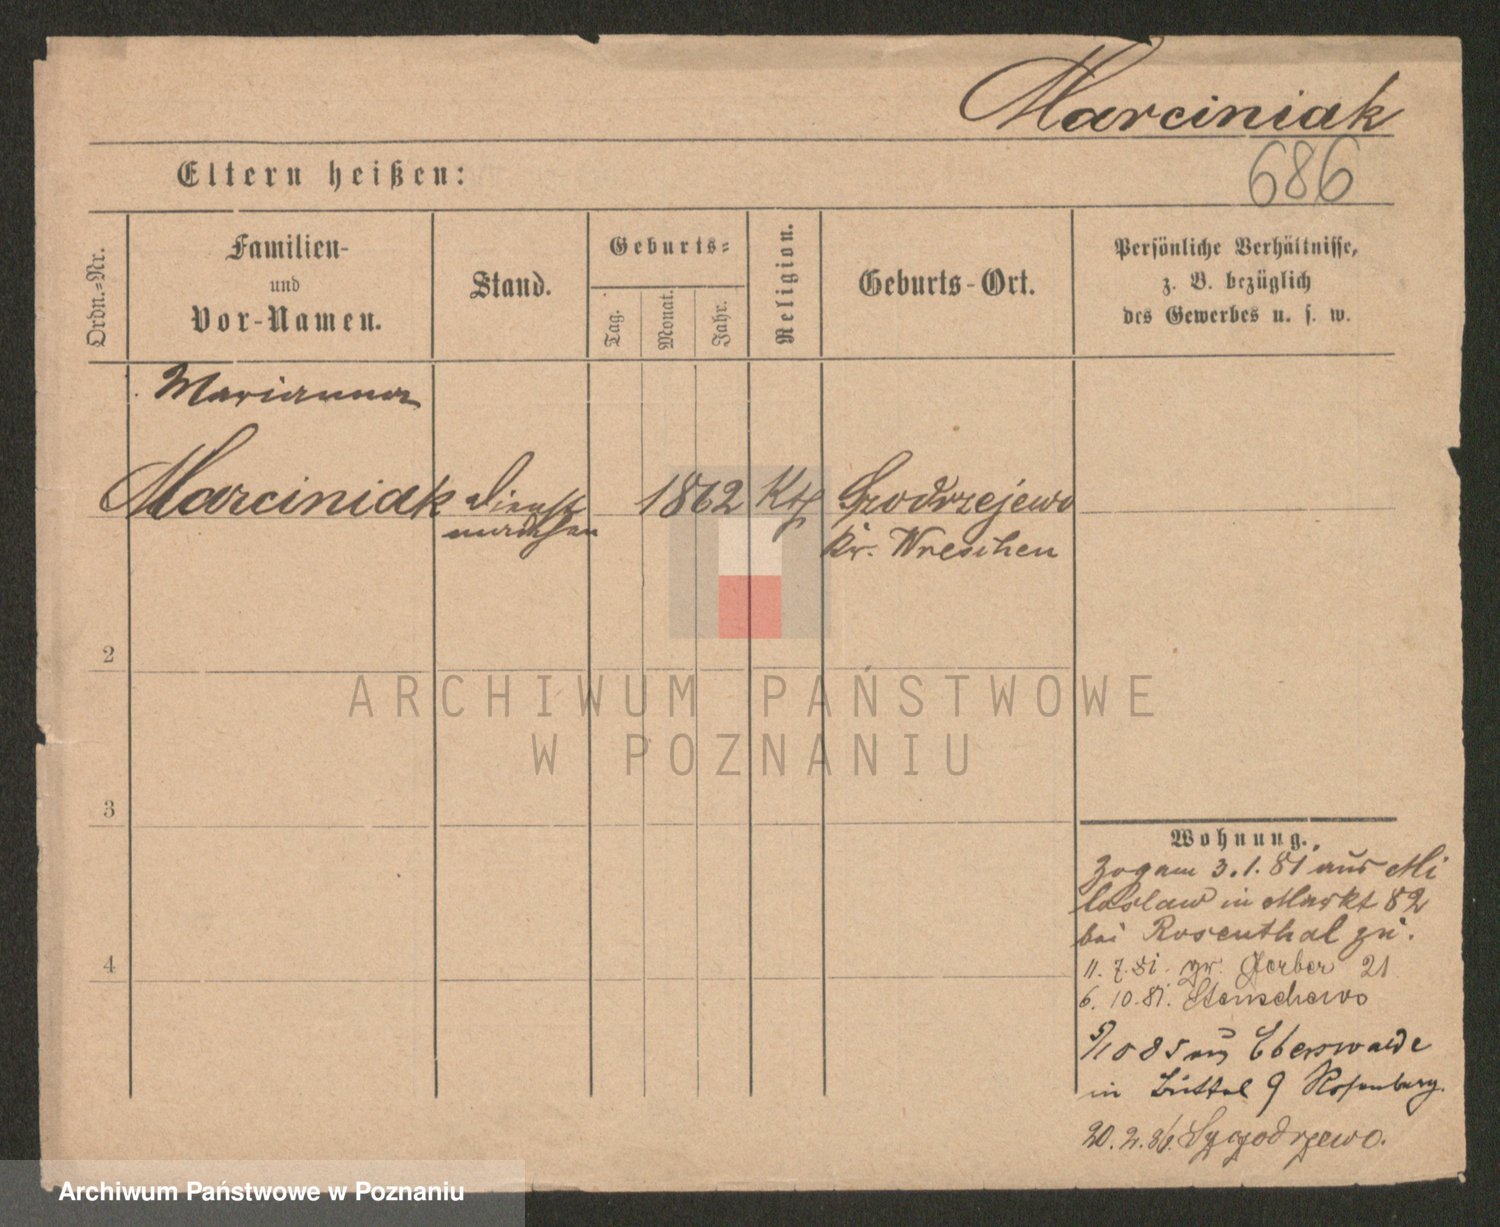 Marciniak
686
Eltern heißen:
Ordn.-Nr.
Familien-
und
Vor-Namen.
Stand.
Geburts-
Tag.
Monat.
Jahr.
Religion.
Geburts-Ort.
Persönliche Verhältnisse,
z. B. bezüglich
des Gewerbes u. s. w.
Marianna
Marciniak
Dienst
mädchen
1862
Kth
Grodrzejewo
Kr. Wreschen
2
3
4
Wohnung.
Zog am 3.1.81 aus Mi
loslaw in Markt 82
bei Rosenthal zu.
11.7.81. gr. Gerber 21
6.10.81. Stenschewo
5/10 85 aus Eberswalde
in Büttel 9 Rosenberg.
20.2.86.
ARCHIWUM PAŃSTWOWE
W POZNANIU
Archiwum Państwowe w Poznaniu